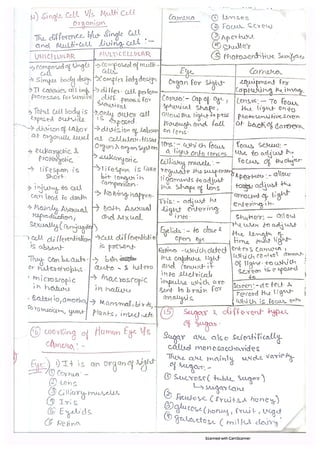 14) Single Cell V/s Multi Cell
Organism
The difference b/w Single Cell
and Multi-Cell living cell :-
UNICELLULAR
MULTICELLULAR
→ composed of single
cell
→ composed of multi-
cells
→ Simple body design
→ Complex body design
→ It carries all
processes for survival
→ differ cell perform
process for
survival
→ Total cell body is
exposed outside
→ only outer cell
is exposed
→ division of labor
at organelle level
→ division of labor
at cellular, tissue
organ & organ system
→ eukaryotic &
Prokaryotic
→ eukaryotic
→ lifespan is
short
→ lifespan is
in
comparison
→ injury to cell
can lead to death
→ Nothing happen
→ Mainly Asexual
reproduction,
sexually (conjugation)
→ both Asexual
and sexual
→ cell differentiation
is absent
→ cell differentiation
is present
→ They can be auto-
or heterotrophs
→
auto - & hetero
→ microscopic
in nature
→ macroscopic
in nature
→ Bacteria, amoeba,
paramecium, yeast
→ Mammal, birds,
Plants, insects etc
15) working of Human Eye V/s
Camera :-
Eye: 1) It is an organ of sight
① Cornea :-
② Lens
③ Ciliary muscles
④ Iris
⑤ Eyelids
⑥ Retina
Camera
① Lenses
② Focus Screw
③ Aperture
④ Shutter
⑤ Photosensitive Surface
Eye
Camera
Organ for Sight
equipment for
Capturing the image
Cornea :- cap of eye,
spherical shape,
allow the light to pass
through and fall
on lens
Lense :- To focus
the light onto
photosensitive screen
at back of camera
Lens :- which focus
light onto lens
Focus Screw :-
use to adjust the
focus of the object
Ciliary muscle :-
ligaments to adjust
the shape of lens
Aperture :- allow
to adjust the
amount of light
entering in
Iris :- adjust the
light entering
into
Shutter :- allow
the user to adjust
the length of
time that light
enters camera,
Eyelids :- to close &
open eye
Retina :- which detect
the capture light
and convert it
into electrical
impulses which are
sent to brain for
analysis
Screen :- detect &
record the light
which is focus on
15) Sugar & different types
of sugar
Sugar are also scientifically
called monosaccharides
There are mainly variety
of sugar :-
① Sucrose (table sugar)
↳ sugarcane
② Fructose (fruits & honey)
③ glucose (honey, fruit, veg)
④ galactose (milk & dairy)
Scanned with CamScanner